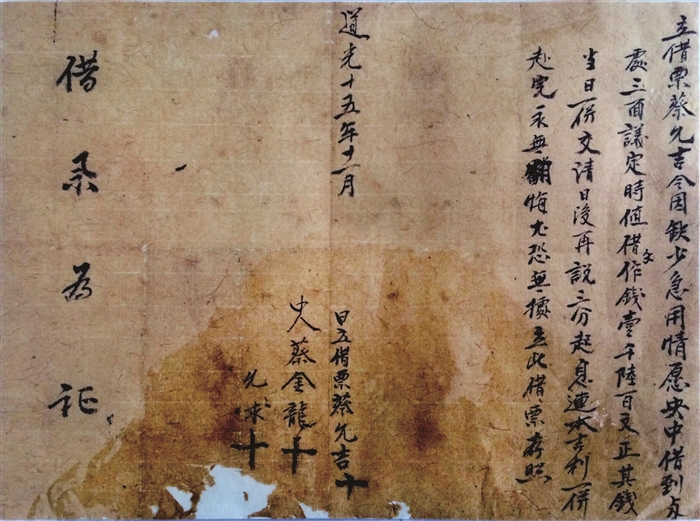 立借票蔡允吉今因缺少急用情愿央中借到贞
处三面議定時值借作錢壹千陸百文正其錢
文
当日一併交清日後再説三分起息連本吉利一併
赴完永無翻悔尤恐無㨿立此借票存照
道光十五年十一月
日立借票蔡允吉十
蔡金龍十
允求十
借票为证